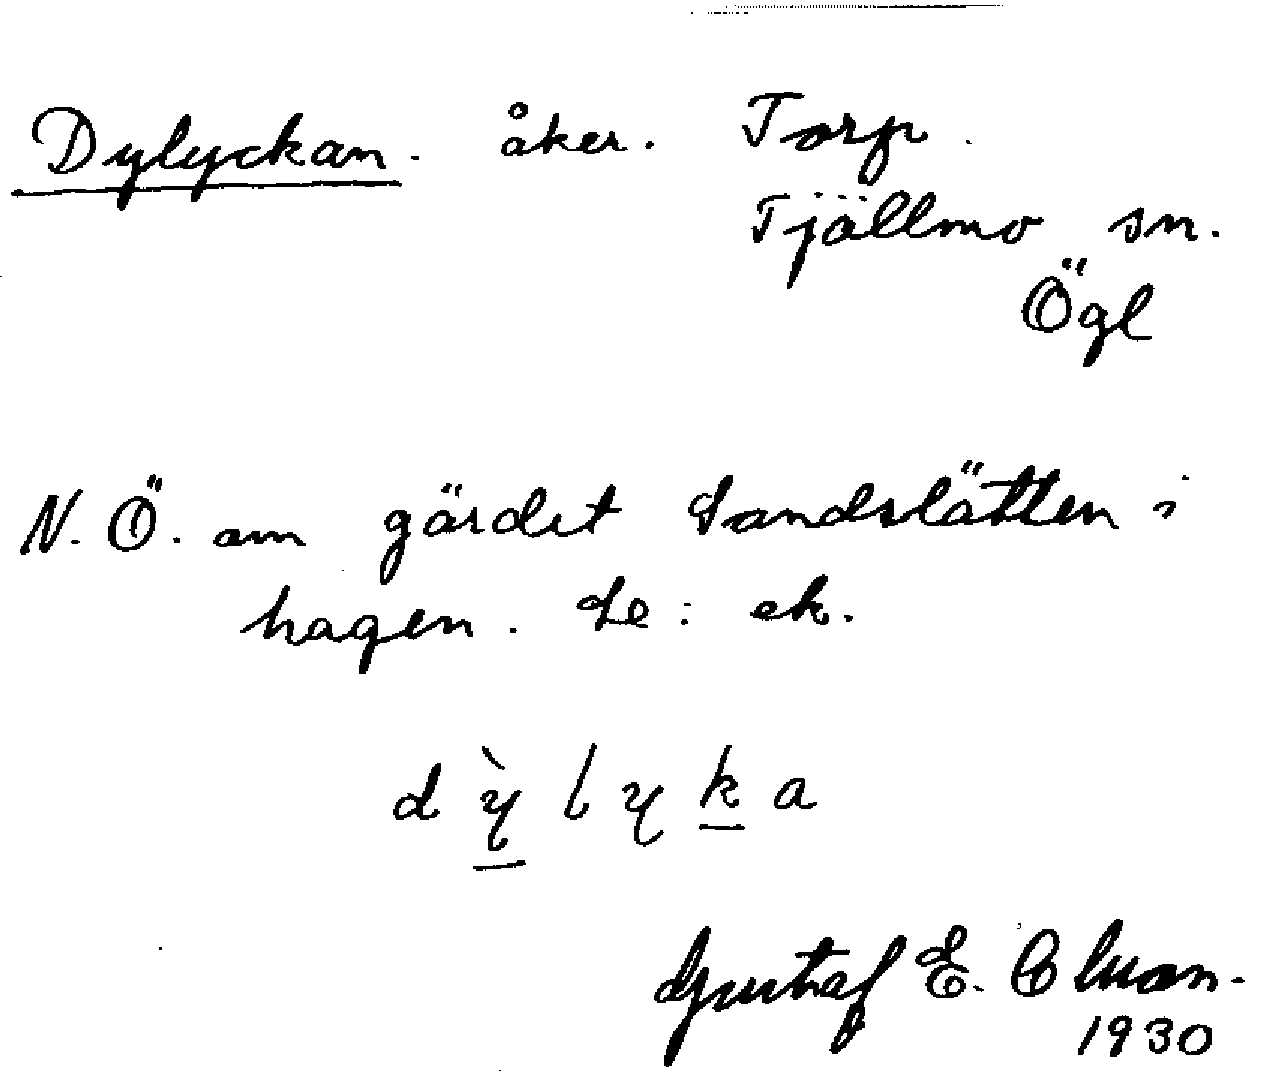 Dylyckan. åker. Torp.
Tjällmo sn.
Ögl
N.Ö. om gärdet Sandslätten i
hagen. Le: ek.
d ỳ l y k a
Gustaf E.
1930